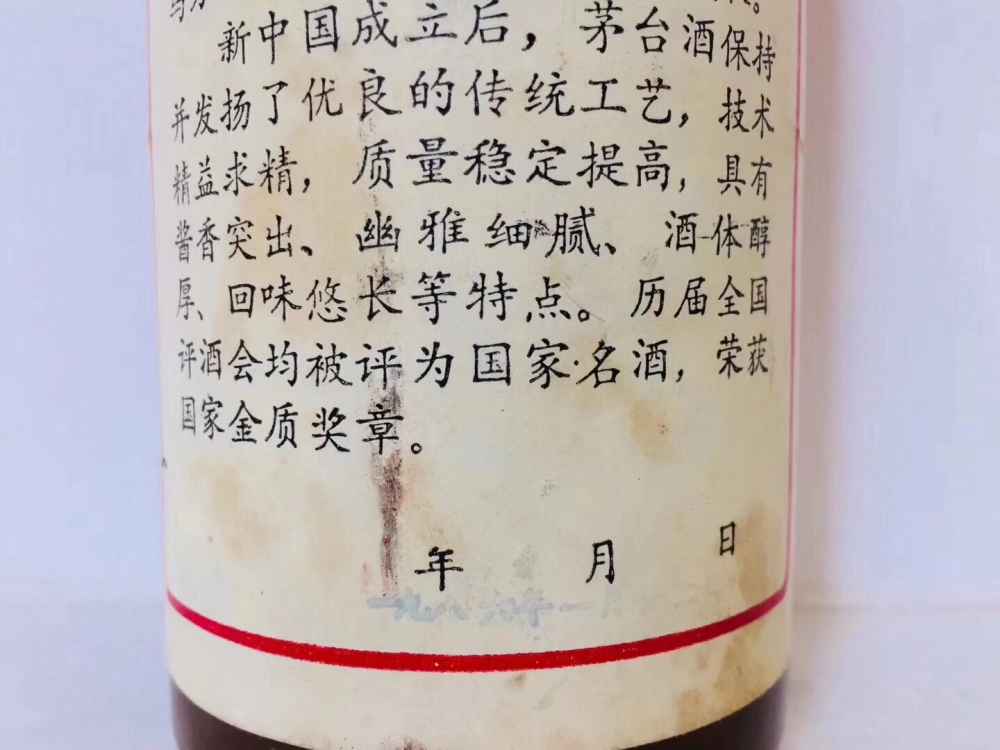 新中国成立后，茅台酒保持
并发扬了优良的传统工艺，技术
精益求精，质量稳定提高，具有
酱香突出、幽雅细腻、酒体醇
厚、回味悠长等特点。历届全国
评酒会均被评为国家名酒，荣获
国家金质奖章。
年 月 日
一九八六年一月